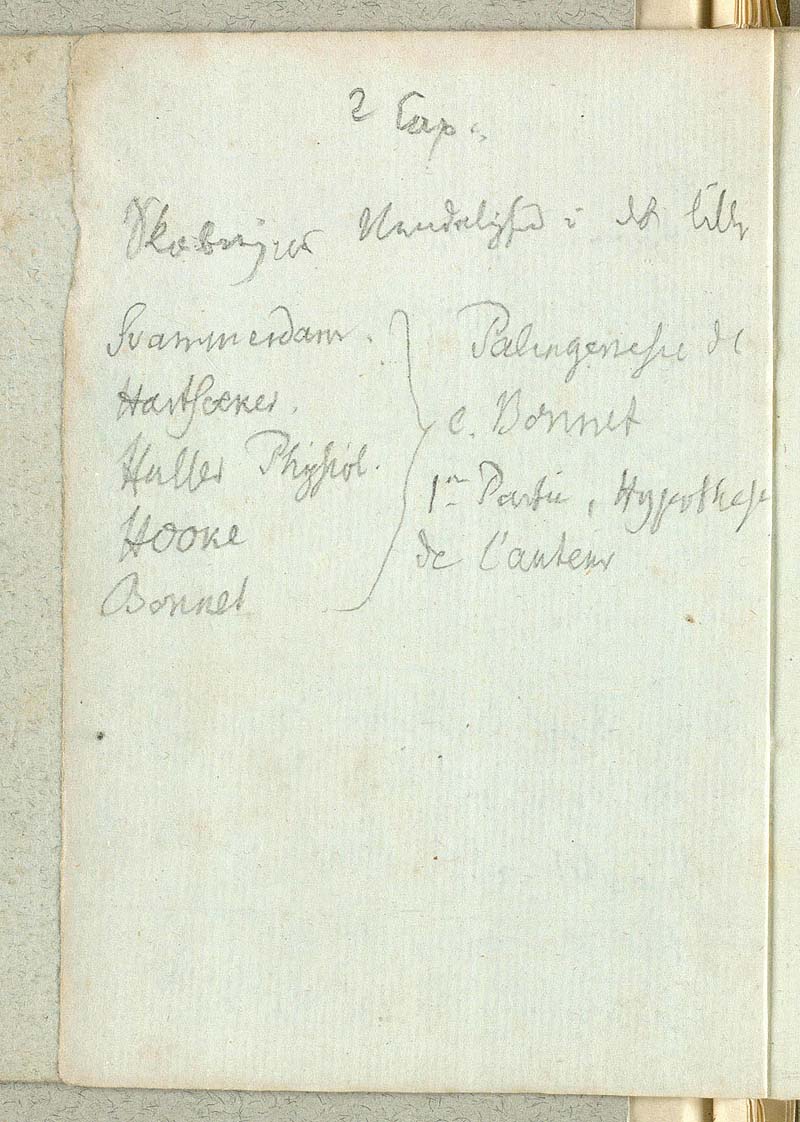 2 Cap.
Skabningens Uendelighed i det lille
Svammerdam.
Hartsoeker.
Haller Physiol.
Hooke
Bonnet
Palingenesie de
C. Bonnet
1re Partie, Hypothese
de l'auteur